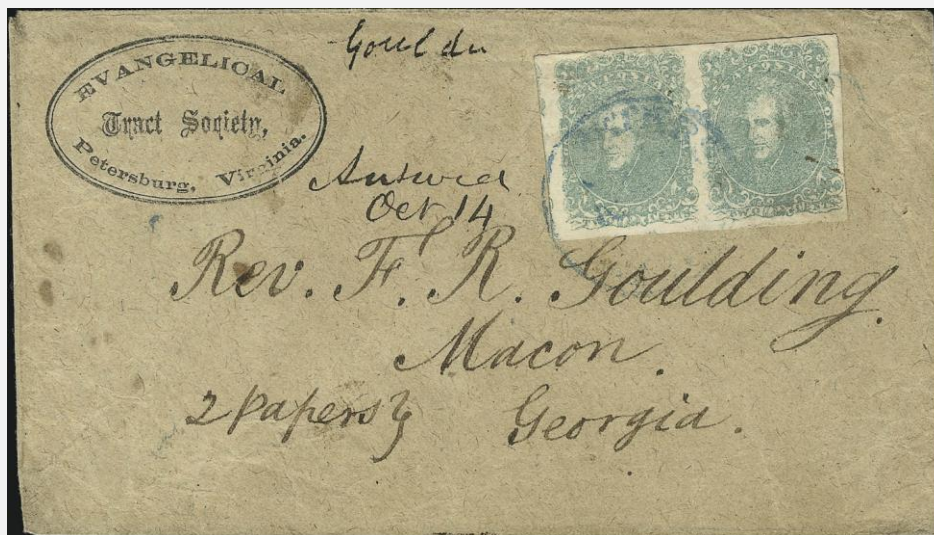 EVANGELICAL
Tract Society,
Petersburg, Virginia.
Answered
Oct 14
Rev. F. R. Goulding.
Macon.
2 papers
Georgia.